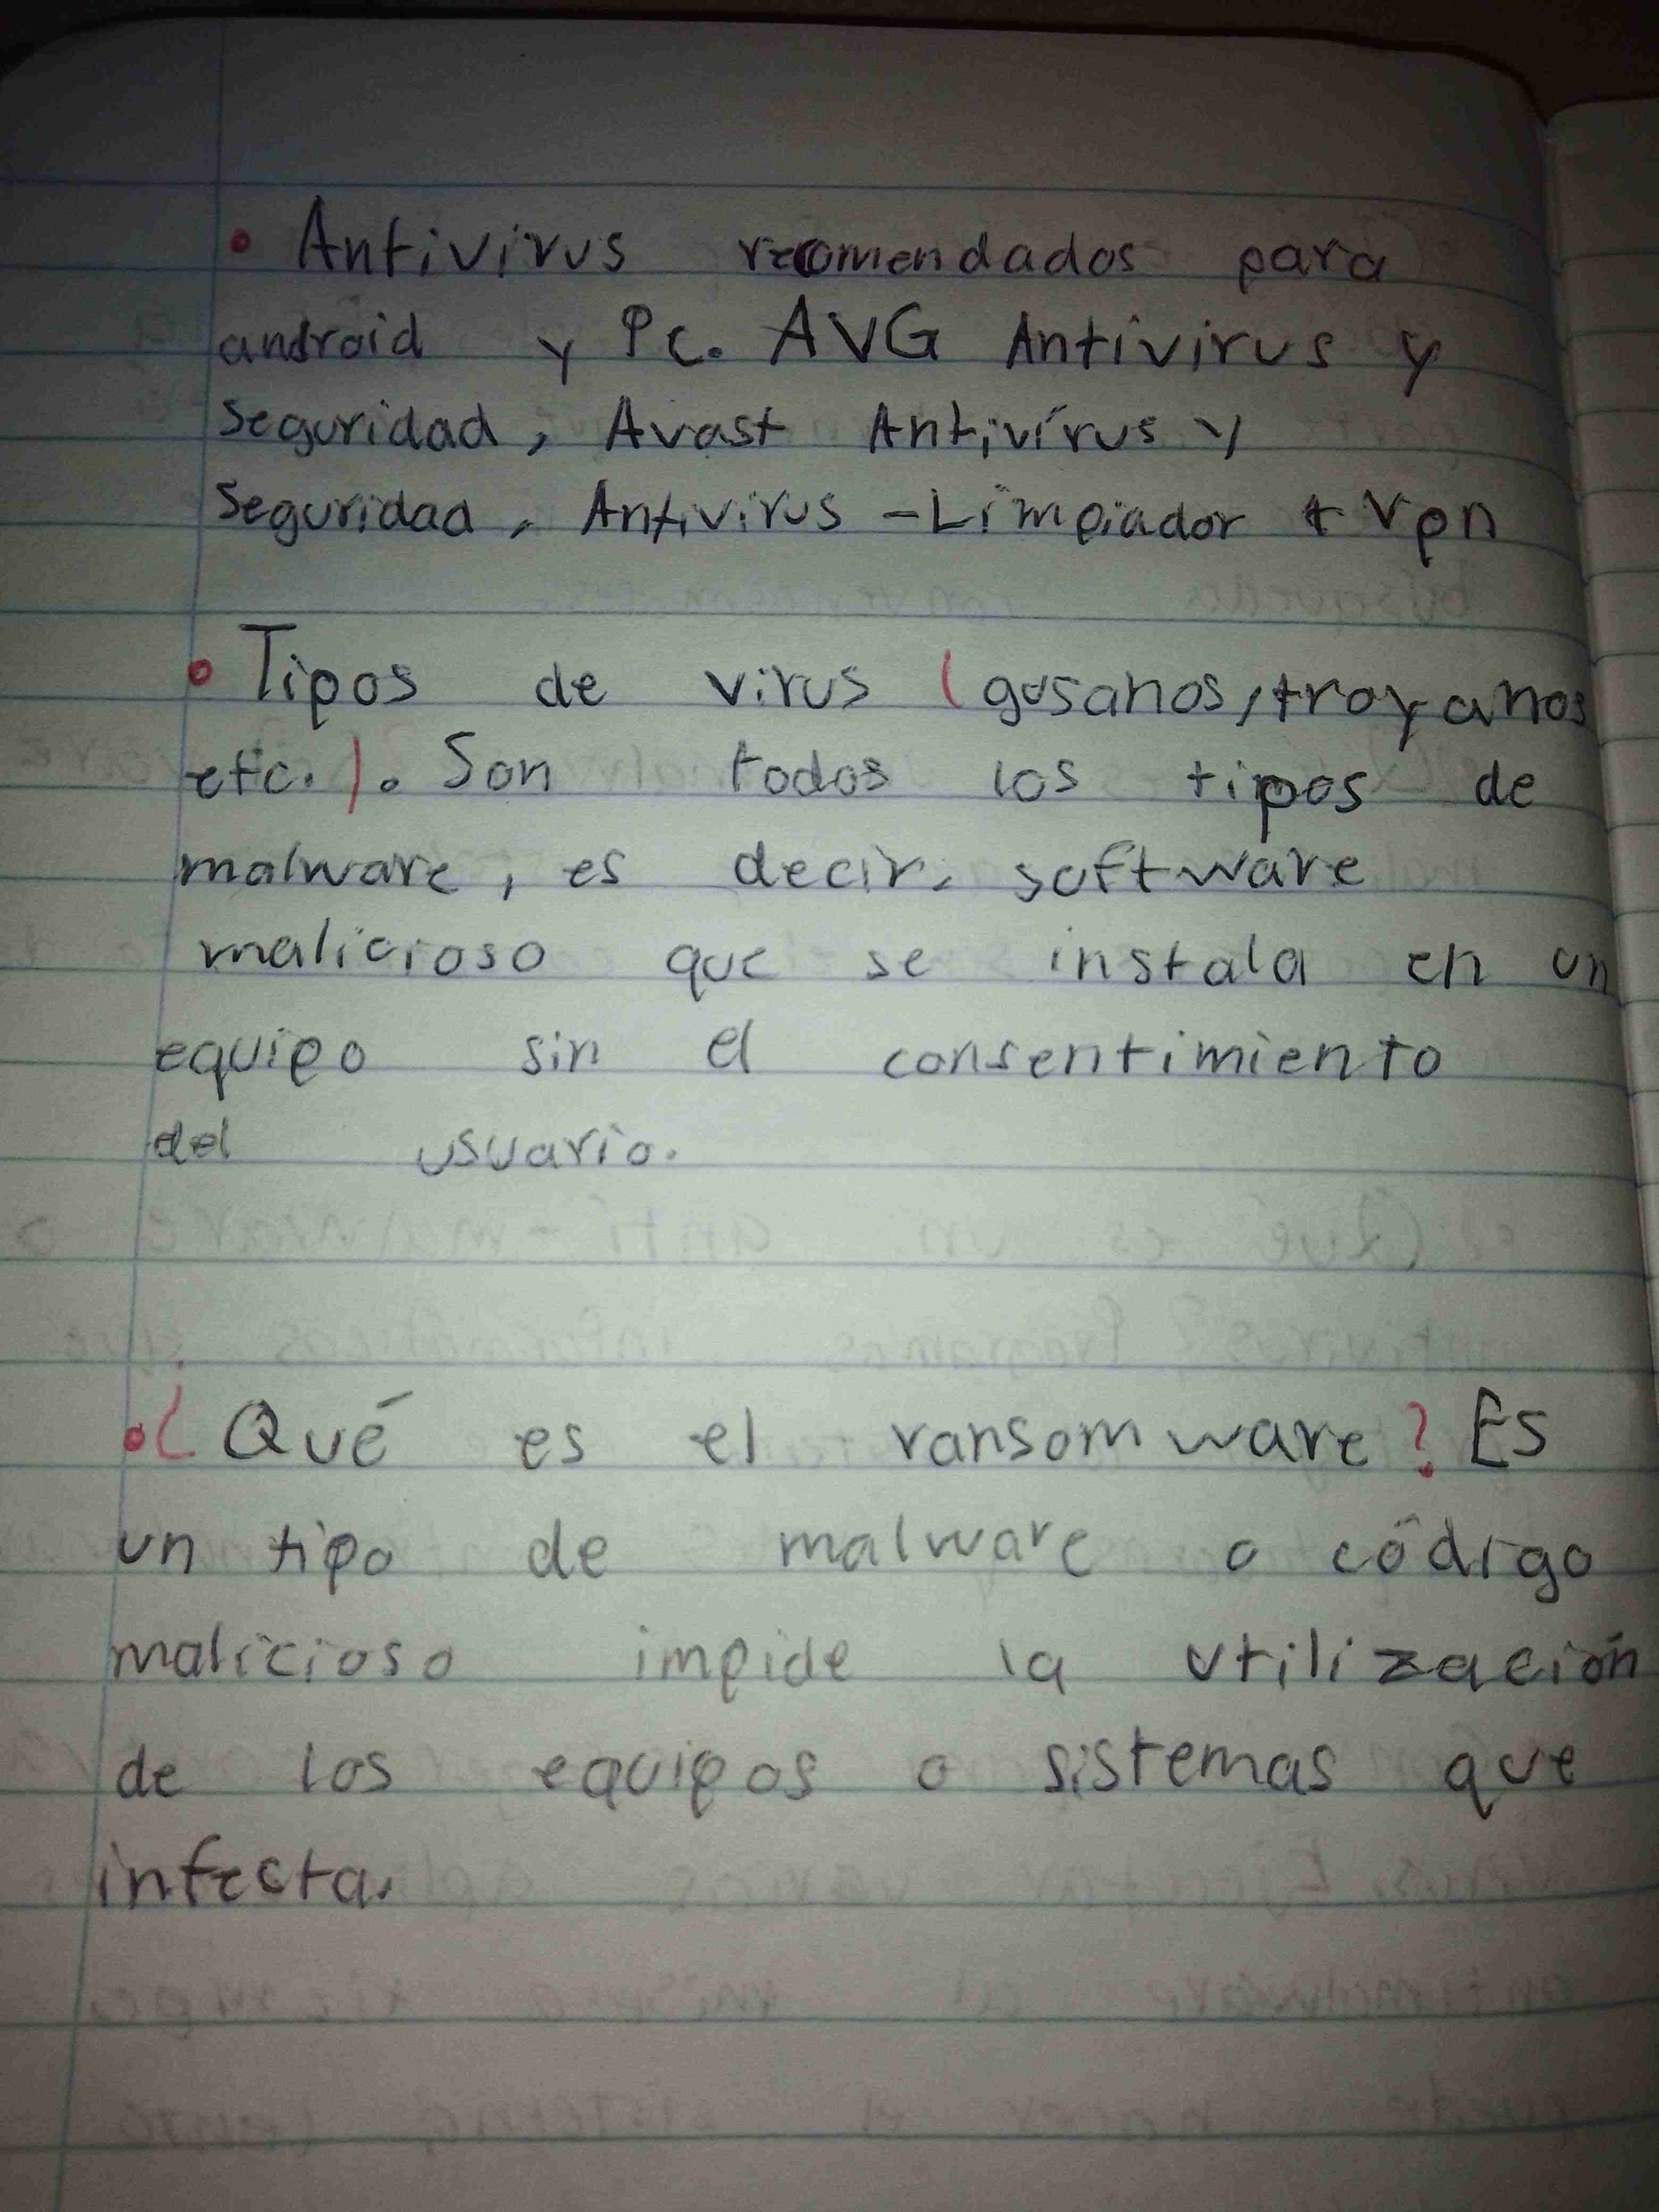 • Antivirus recomendados para
android y Pc. AVG Antivirus y
Seguridad, Avast Antivirus y
Seguridad, Antivirus - Limpiador + Vpn
• Tipos de virus (gusanos, troyanos
etc.). Son todos los tipos de
malware, es decir, software
malicioso que se instala en un
equipo sin el consentimiento
del usuario.
• ¿Qué es el ransomware? Es
un tipo de malware o código
malicioso impide la utilización
de los equipos o sistemas que
infecta.